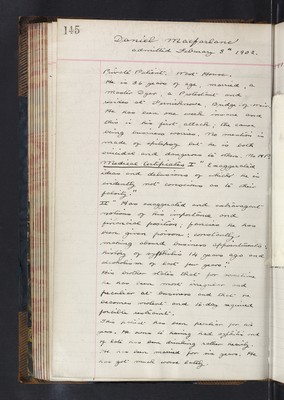 145
Daniel Macfarlane
admitted February 3rd 1902.
Private Patient. West House.
He is 36 years of age, married, a
Master Dyer, a Protestant and
resides at Bridge of Weir.
He has been one week insane and
this is his first attack, the cause
being business worries. No mention is
made of epilepsy but he is both
suicidal and dangerous to others.
Medical Certificates I "Exaggerated
ideas and delusions of He is
evidently not conscious as to their
falsity."
II "Has exaggerated and extravagant
notions of his importance and
financial position; fancies he has
been given poison; constantly
making absurd business appointments;
history of syphilis 16 years ago and
alcoholism of years."
His brother states that for
he has been most irregular and
peculiar at business and that he
becomes violent and to-day required
forcible restraint.
This patient has been peculiar for six
years. He seems to having had syphilis and
of late has been drinking rather heavily.
He has been married for six years. He
has got much worse lately.